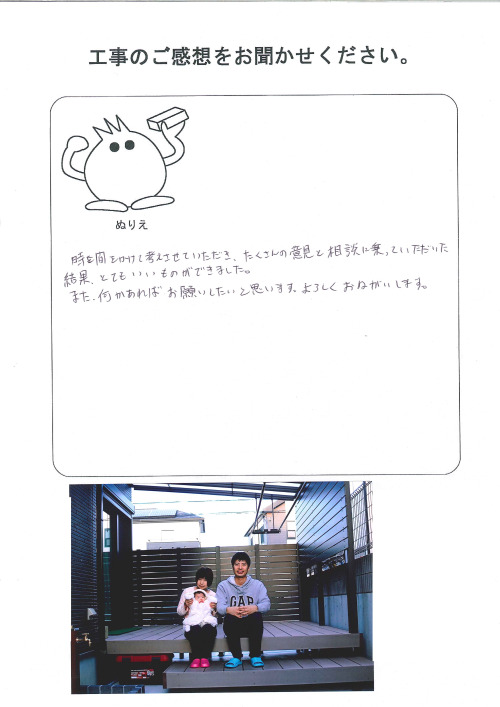 工事のご感想をお聞かせください。
ぬりえ
時間をかけて考えさせていただき、たくさんの意見と相談に乗っていただいた
結果、とてもいいものができました。
また、何かあればお願いしたいと思います。よろしくおねがいします。
GAP